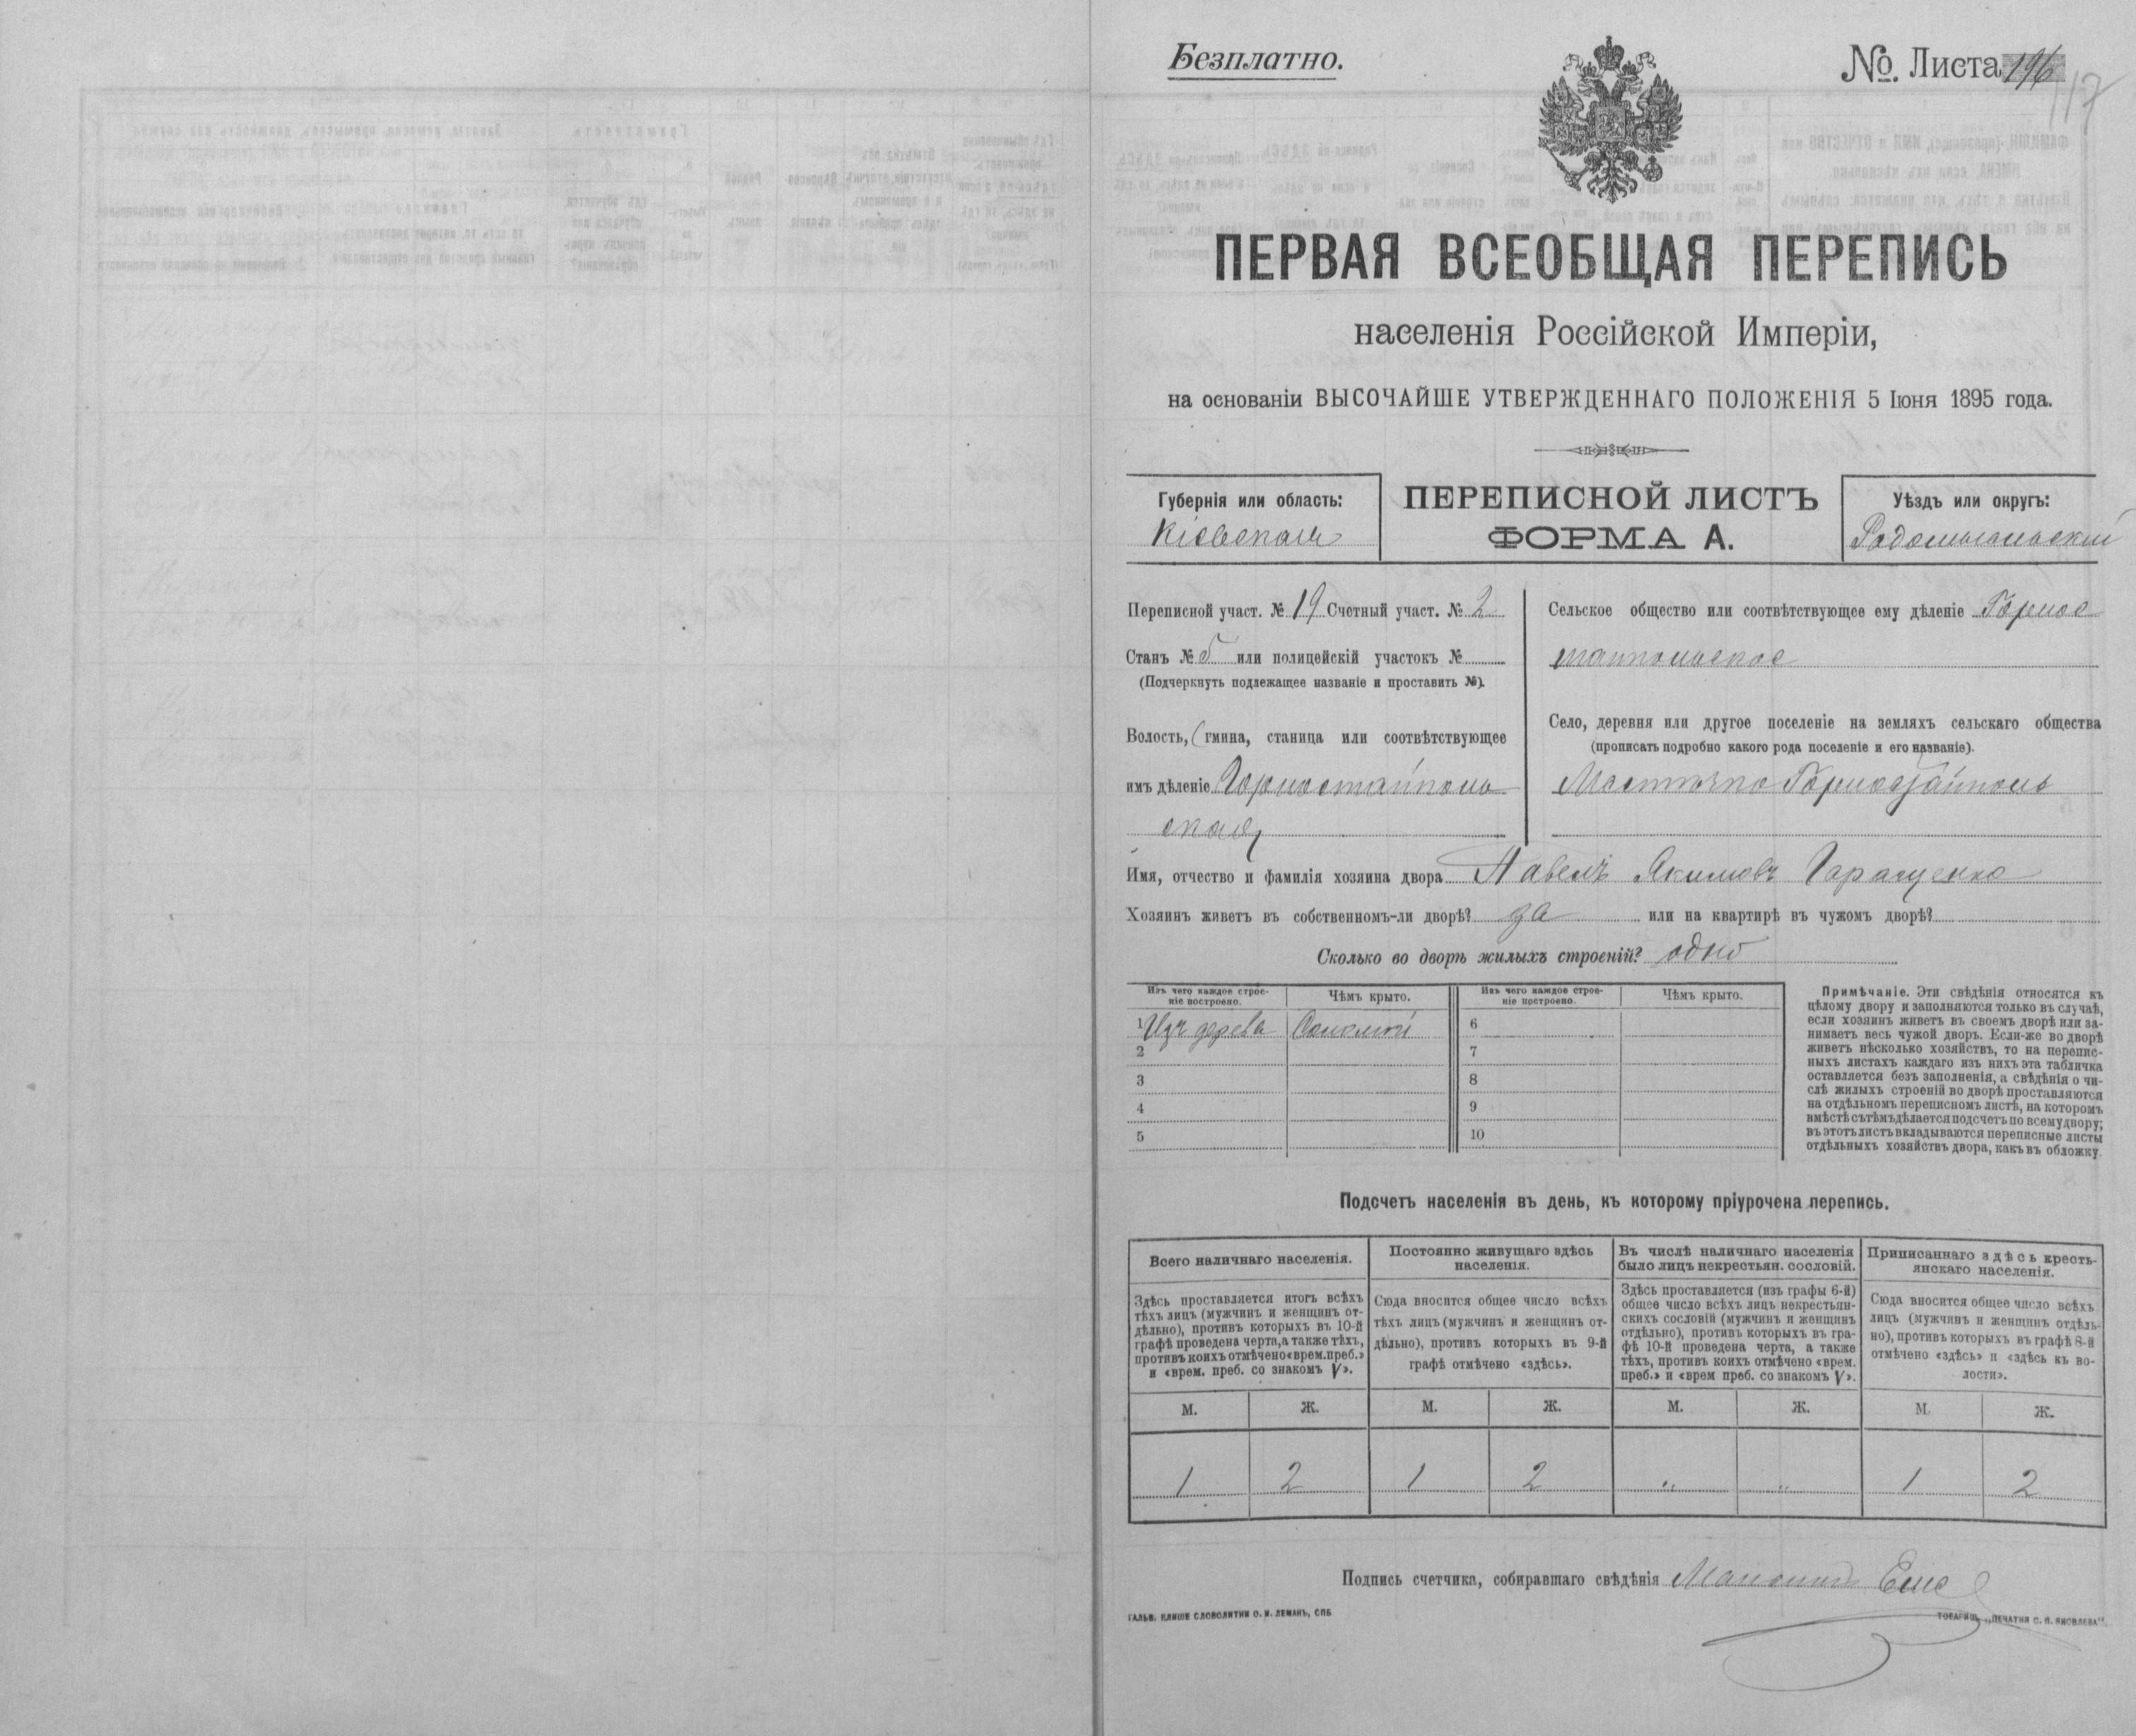 Безплатно.
№ Листа 196
117
ПЕРВАЯ ВСЕОБЩАЯ ПЕРЕПИСЬ
населенія Россійской Имперіи,
на основаніи ВЫСОЧАЙШЕ УТВЕРЖДЕННАГО ПОЛОЖЕНІЯ 5 Іюня 1895 года.
Губернія или область:
Кіевская
ПЕРЕПИСНОЙ ЛИСТЪ
ФОРМА А.
Уѣздъ или округъ:
Радомысльскій
Переписной участ. № 19 Счетный участ. № 2
Станъ № 5 или полицейскій участокъ №
(Подчеркнуть подлежащее названіе и проставить №).
Волость, (гмина, станица или соотвѣтствующее
имъ дѣленіе Горностайполь
ская
Сельское общество или соотвѣтствующее ему дѣленіе Горнос
тайпольское
Село, деревня или другое поселеніе на земляхъ сельскаго общества
(прописать подробно какого рода поселеніе и его названіе).
Мѣстечко Горностайполь
Имя, отчество и фамилія хозяина двора Павелъ Якимовъ Гаращенко
Хозяинъ живетъ въ собственномъ-ли дворѣ? да или на квартирѣ въ чужомъ дворѣ?
Сколько во дворѣ жилыхъ строеній? одно
Изъ чего каждое строе-
ніе построено.
Чѣмъ крыто.
Изъ чего каждое строе-
ніе построено.
Чѣмъ крыто.
1 Изъ дерева Соломой 6
2 7
3 8
4 9
5 10
Примѣчаніе. Эти свѣдѣнія относятся къ
цѣлому двору и заполняются только въ случаѣ,
если хозяинъ живетъ въ своемъ дворѣ или за-
нимаетъ весь чужой дворъ. Если-же во дворѣ
живетъ нѣсколько хозяйствъ, то на перепис-
ныхъ листахъ каждаго изъ нихъ эта табличка
оставляется безъ заполненія, а свѣдѣнія о чи-
слѣ жилыхъ строеній во дворѣ проставляются
на отдѣльномъ переписномъ листѣ, на которомъ
вмѣстѣ съ тѣмъ дѣлается подсчетъ по всему двору;
въ этотъ листъ вкладываются переписные листы
отдѣльныхъ хозяйствъ двора, какъ въ обложку.
Подсчетъ населенія въ день, къ которому пріурочена перепись.
Всего наличнаго населенія.
Здѣсь проставляется итогъ всѣхъ
тѣхъ лицъ (мужчинъ и женщинъ от-
дѣльно), противъ которыхъ въ 10-й
графѣ проведена черта, а также тѣхъ,
противъ коихъ отмѣчено «врем. преб.»
и «врем. преб. со знакомъ V».
Постоянно живущаго здѣсь
населенія.
Сюда вносится общее число всѣхъ
тѣхъ лицъ (мужчинъ и женщинъ от-
дѣльно), противъ которыхъ въ 9-й
графѣ отмѣчено «здѣсь».
Въ числѣ наличнаго населенія
было лицъ некрестьян. сословій.
Здѣсь проставляется (изъ графы 6-й)
общее число всѣхъ лицъ некрестьян-
скихъ сословій (мужчинъ и женщинъ
отдѣльно), противъ которыхъ въ гра-
фѣ 10-й проведена черта, а также
тѣхъ, противъ коихъ отмѣчено «врем.
преб.» и «врем преб. со знакомъ V».
Приписаннаго здѣсь кресть-
янскаго населенія.
Сюда вносится общее число всѣхъ
лицъ (мужчинъ и женщинъ отдѣль-
но), противъ которыхъ въ графѣ 8-й
отмѣчено «здѣсь» и «здѣсь къ во-
лости».
М. Ж. М. Ж. М. Ж. М. Ж.
1 2 1 2 „ „ 1 2
Подпись счетчика, собиравшаго свѣдѣнія
ГАЛЬВ. КЛИШЕ СЛОВОЛИТНИ О. И. ЛЕМАНЪ, СПБ
ТОВАРИЩ. „ПЕЧАТНИ С. П. ЯКОВЛЕВА“.